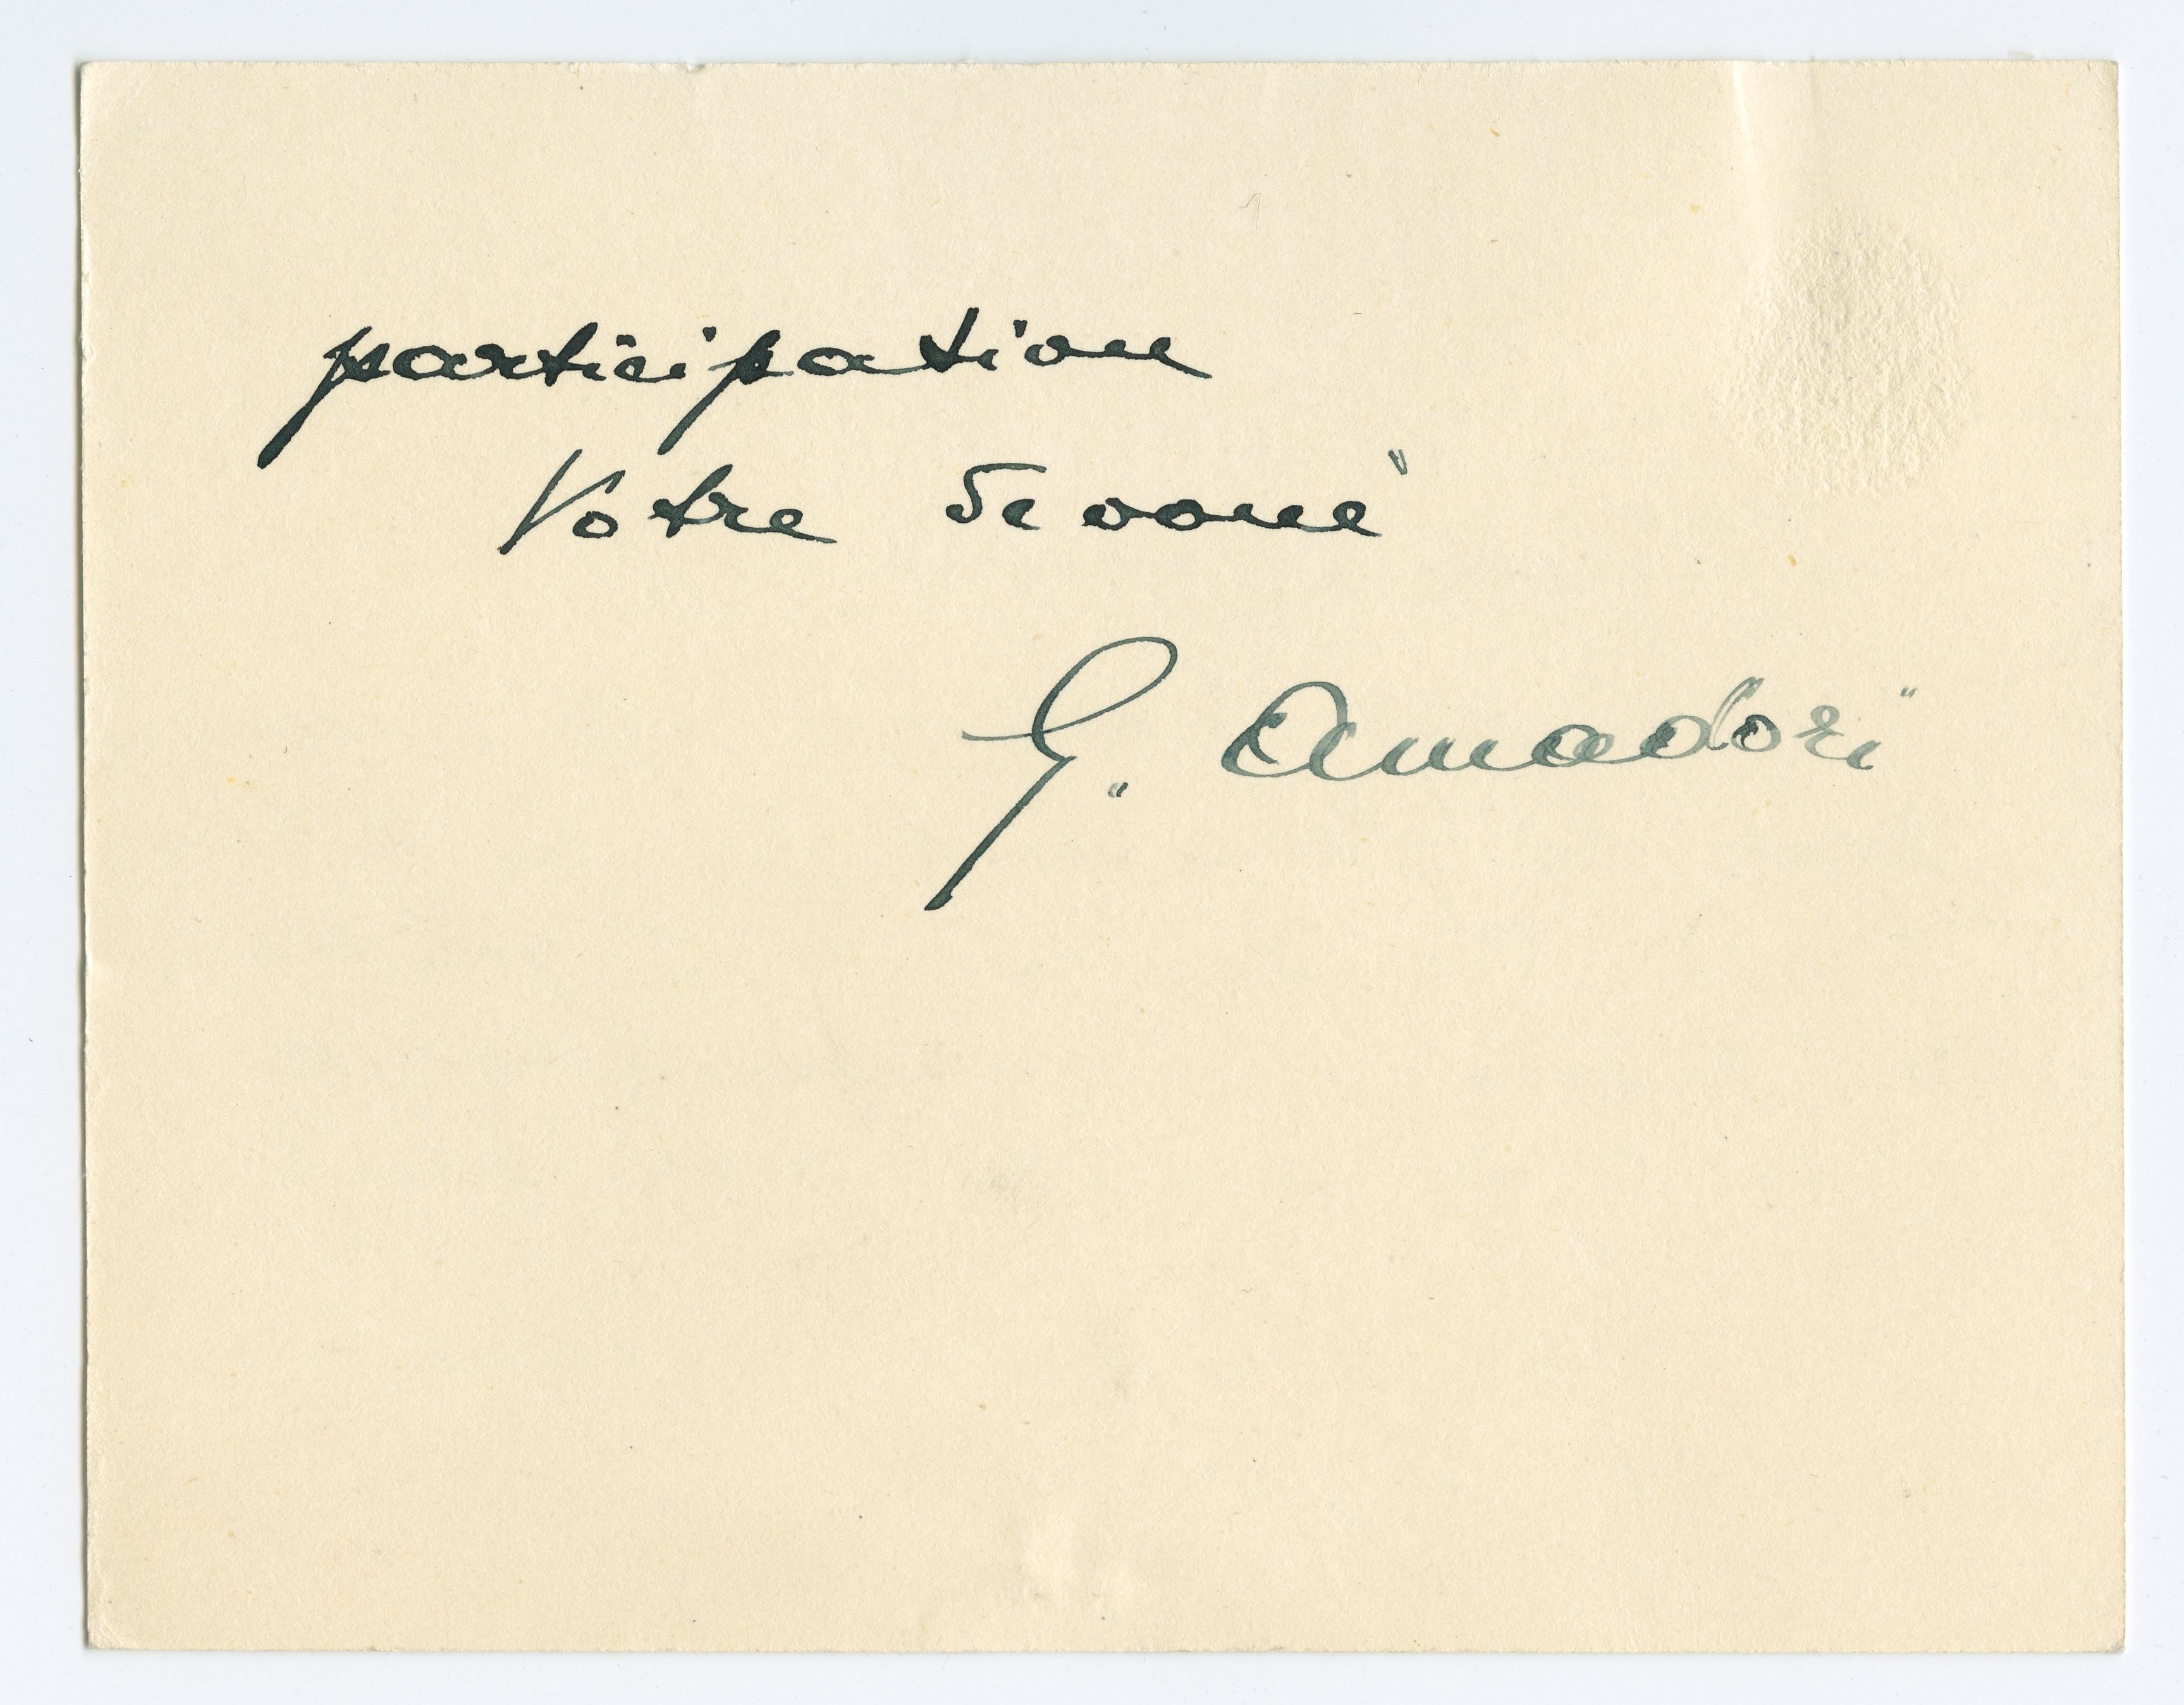 participation
Votre devoué
G. Amadori